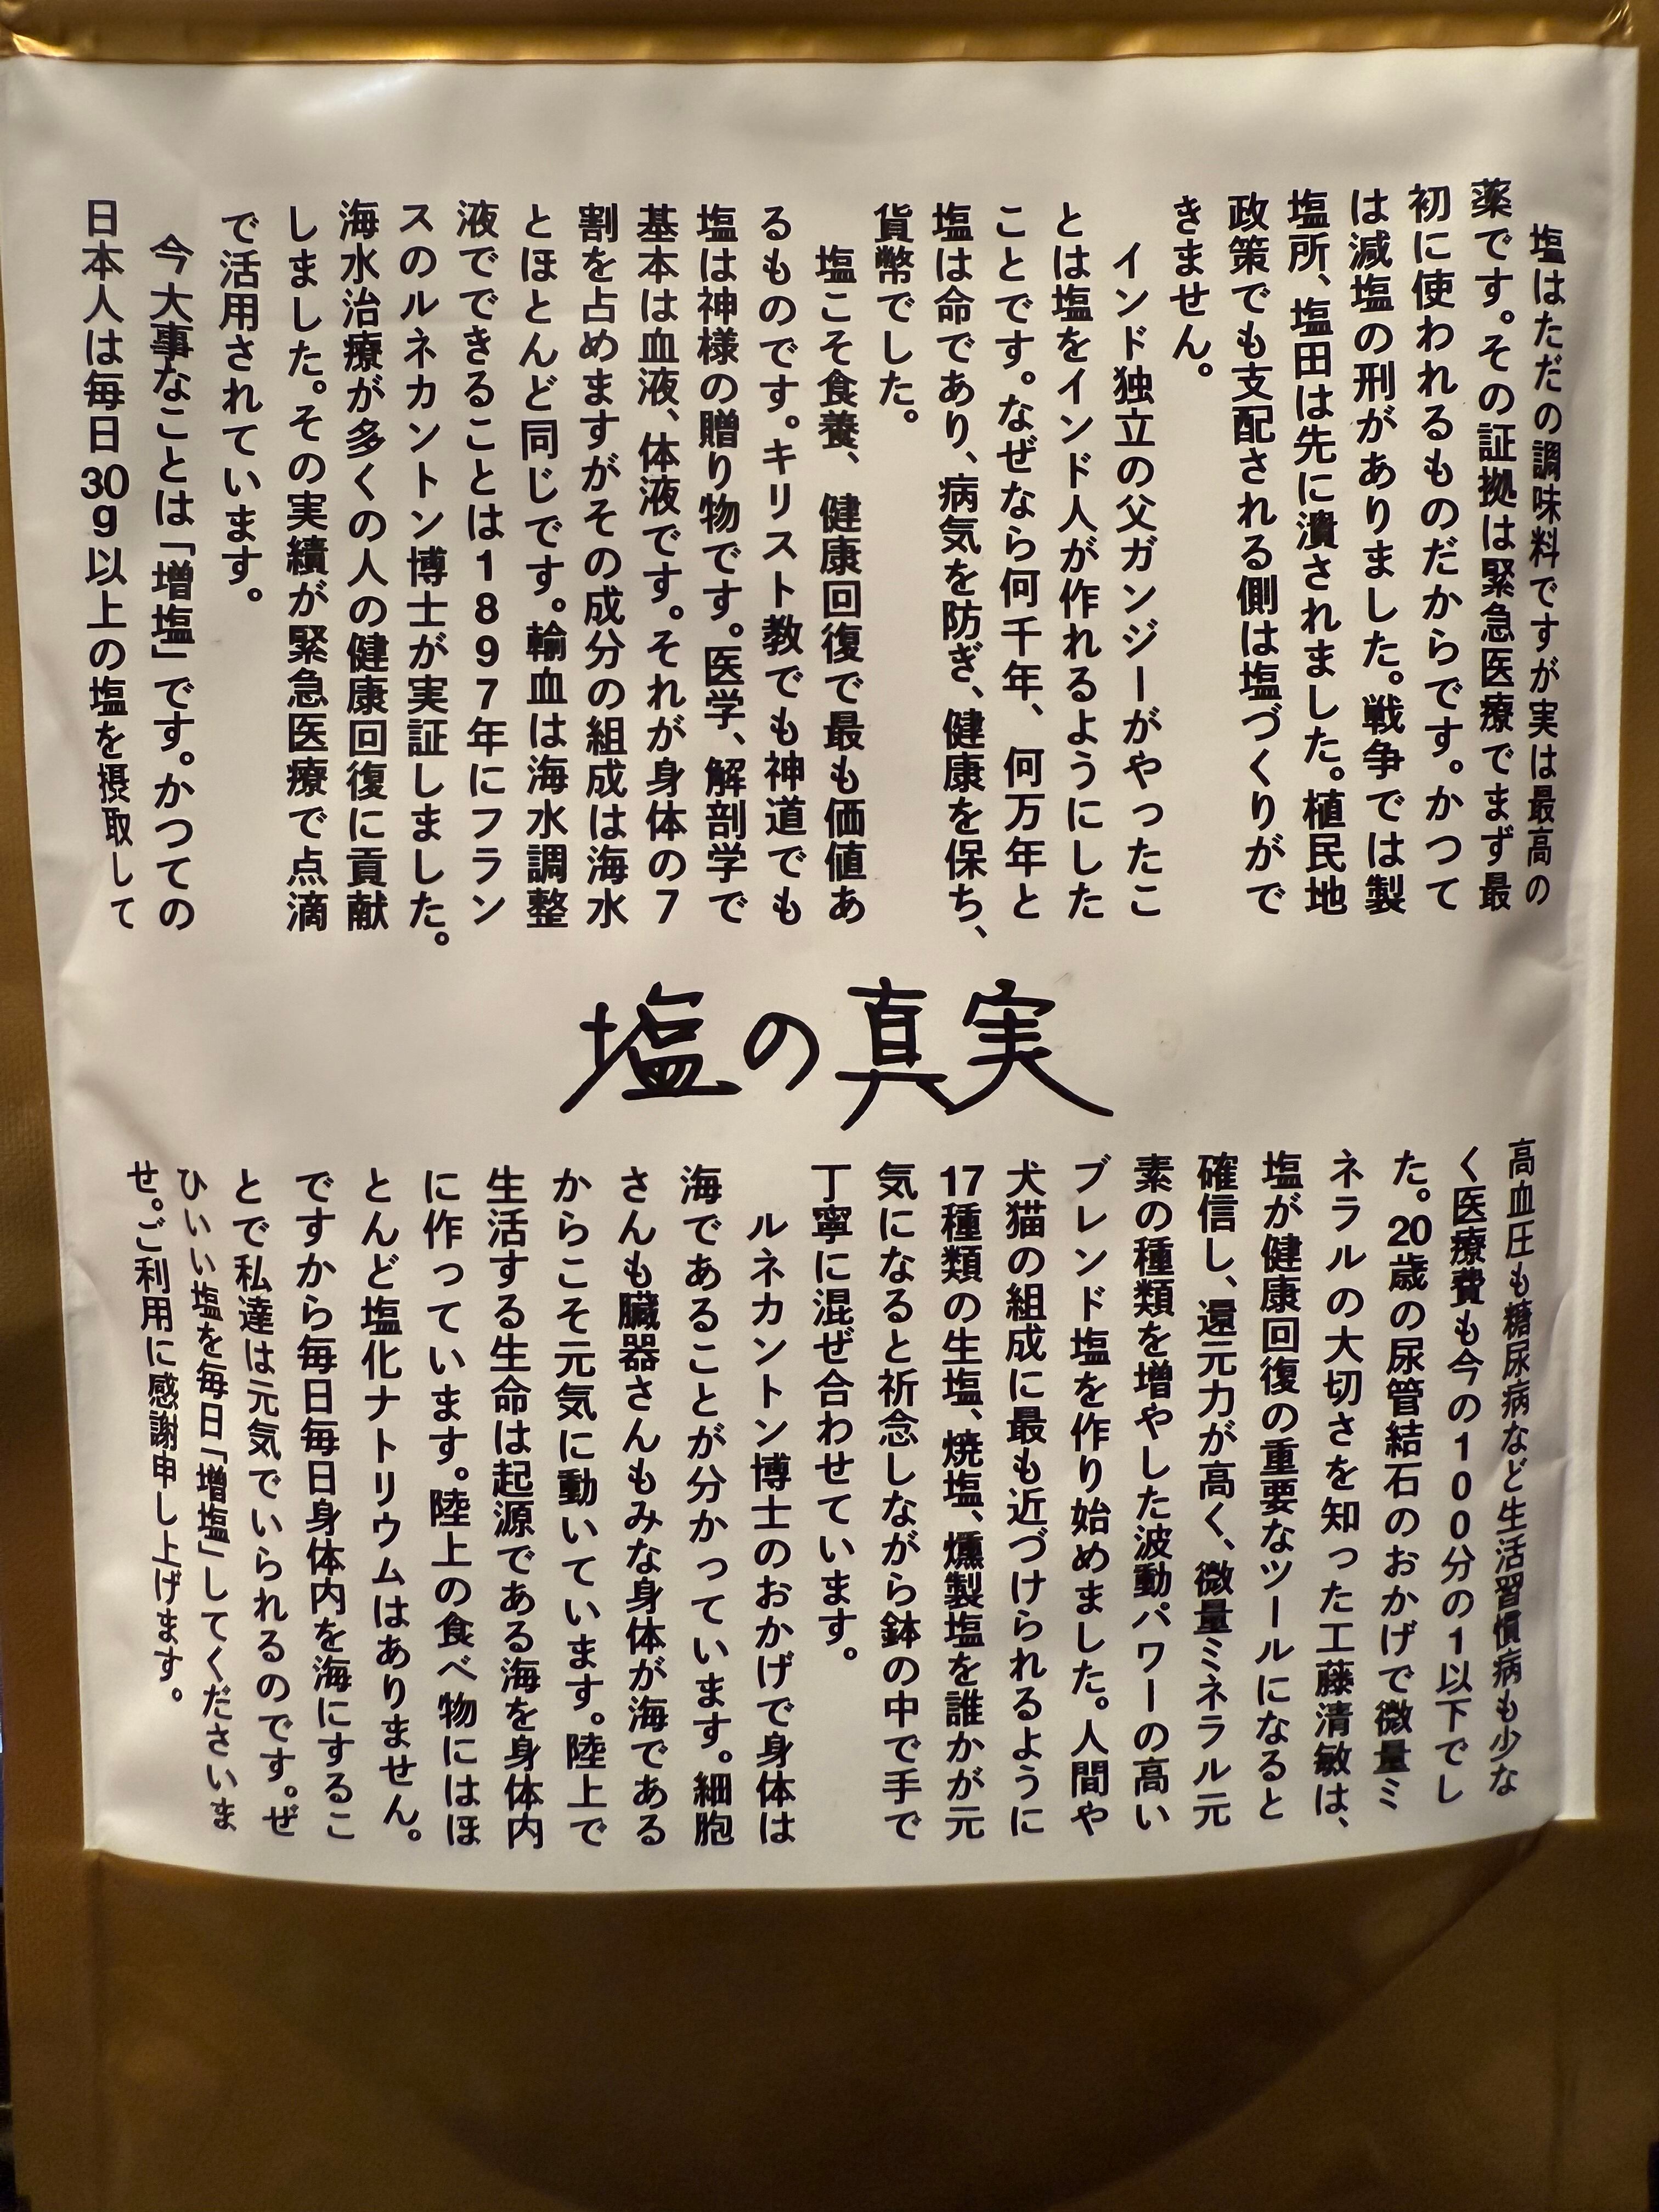 塩の真実
塩はただの調味料ですが実は最高の
薬です。その証拠は緊急医療でまず最
初に使われるものだからです。かつて
は減塩の刑がありました。戦争では製
塩所、塩田は先に潰されました。植民地
政策でも支配される側は塩づくりがで
きません。
インド独立の父ガンジーがやったこ
とは塩をインド人が作れるようにした
ことです。なぜなら何千年、何万年と
塩は命であり、病気を防ぎ、健康を保ち、
貨幣でした。
塩こそ食養、健康回復で最も価値あ
るものです。キリスト教でも神道でも
塩は神様の贈り物です。医学、解剖学で
基本は血液、体液です。それが身体の7
割を占めますがその成分の組成は海水
とほとんど同じです。輸血は海水調整
液でできることは1897年にフラン
スのルネカントン博士が実証しました。
海水治療が多くの人の健康回復に貢献
しました。その実績が緊急医療で点滴
で活用されています。
今大事なことは「増塩」です。かつての
日本人は毎日30g以上の塩を摂取して
高血圧も糖尿病など生活習慣病も少な
く医療費も今の100分の1以下でし
た。20歳の尿管結石のおかげで微量ミ
ネラルの大切さを知った工藤清敏は、
塩が健康回復の重要なツールになると
確信し、還元力が高く、微量ミネラル元
素の種類を増やした波動パワーの高い
ブレンド塩を作り始めました。人間や
犬猫の組成に最も近づけられるように
17種類の生塩、焼塩、燻製塩を誰かが元
気になると祈念しながら鉢の中で手で
丁寧に混ぜ合わせています。
ルネカントン博士のおかげで身体は
海であることが分かっています。細胞
さんも臓器さんもみな身体が海である
からこそ元気に動いています。陸上で
生活する生命は起源である海を身体内
に作っています。陸上の食べ物にはほ
とんど塩化ナトリウムはありません。
ですから毎日毎日身体内を海にするこ
とで私達は元気でいられるのです。ぜ
ひいい塩を毎日「増塩」してくださいま
せ。ご利用に感謝申し上げます。